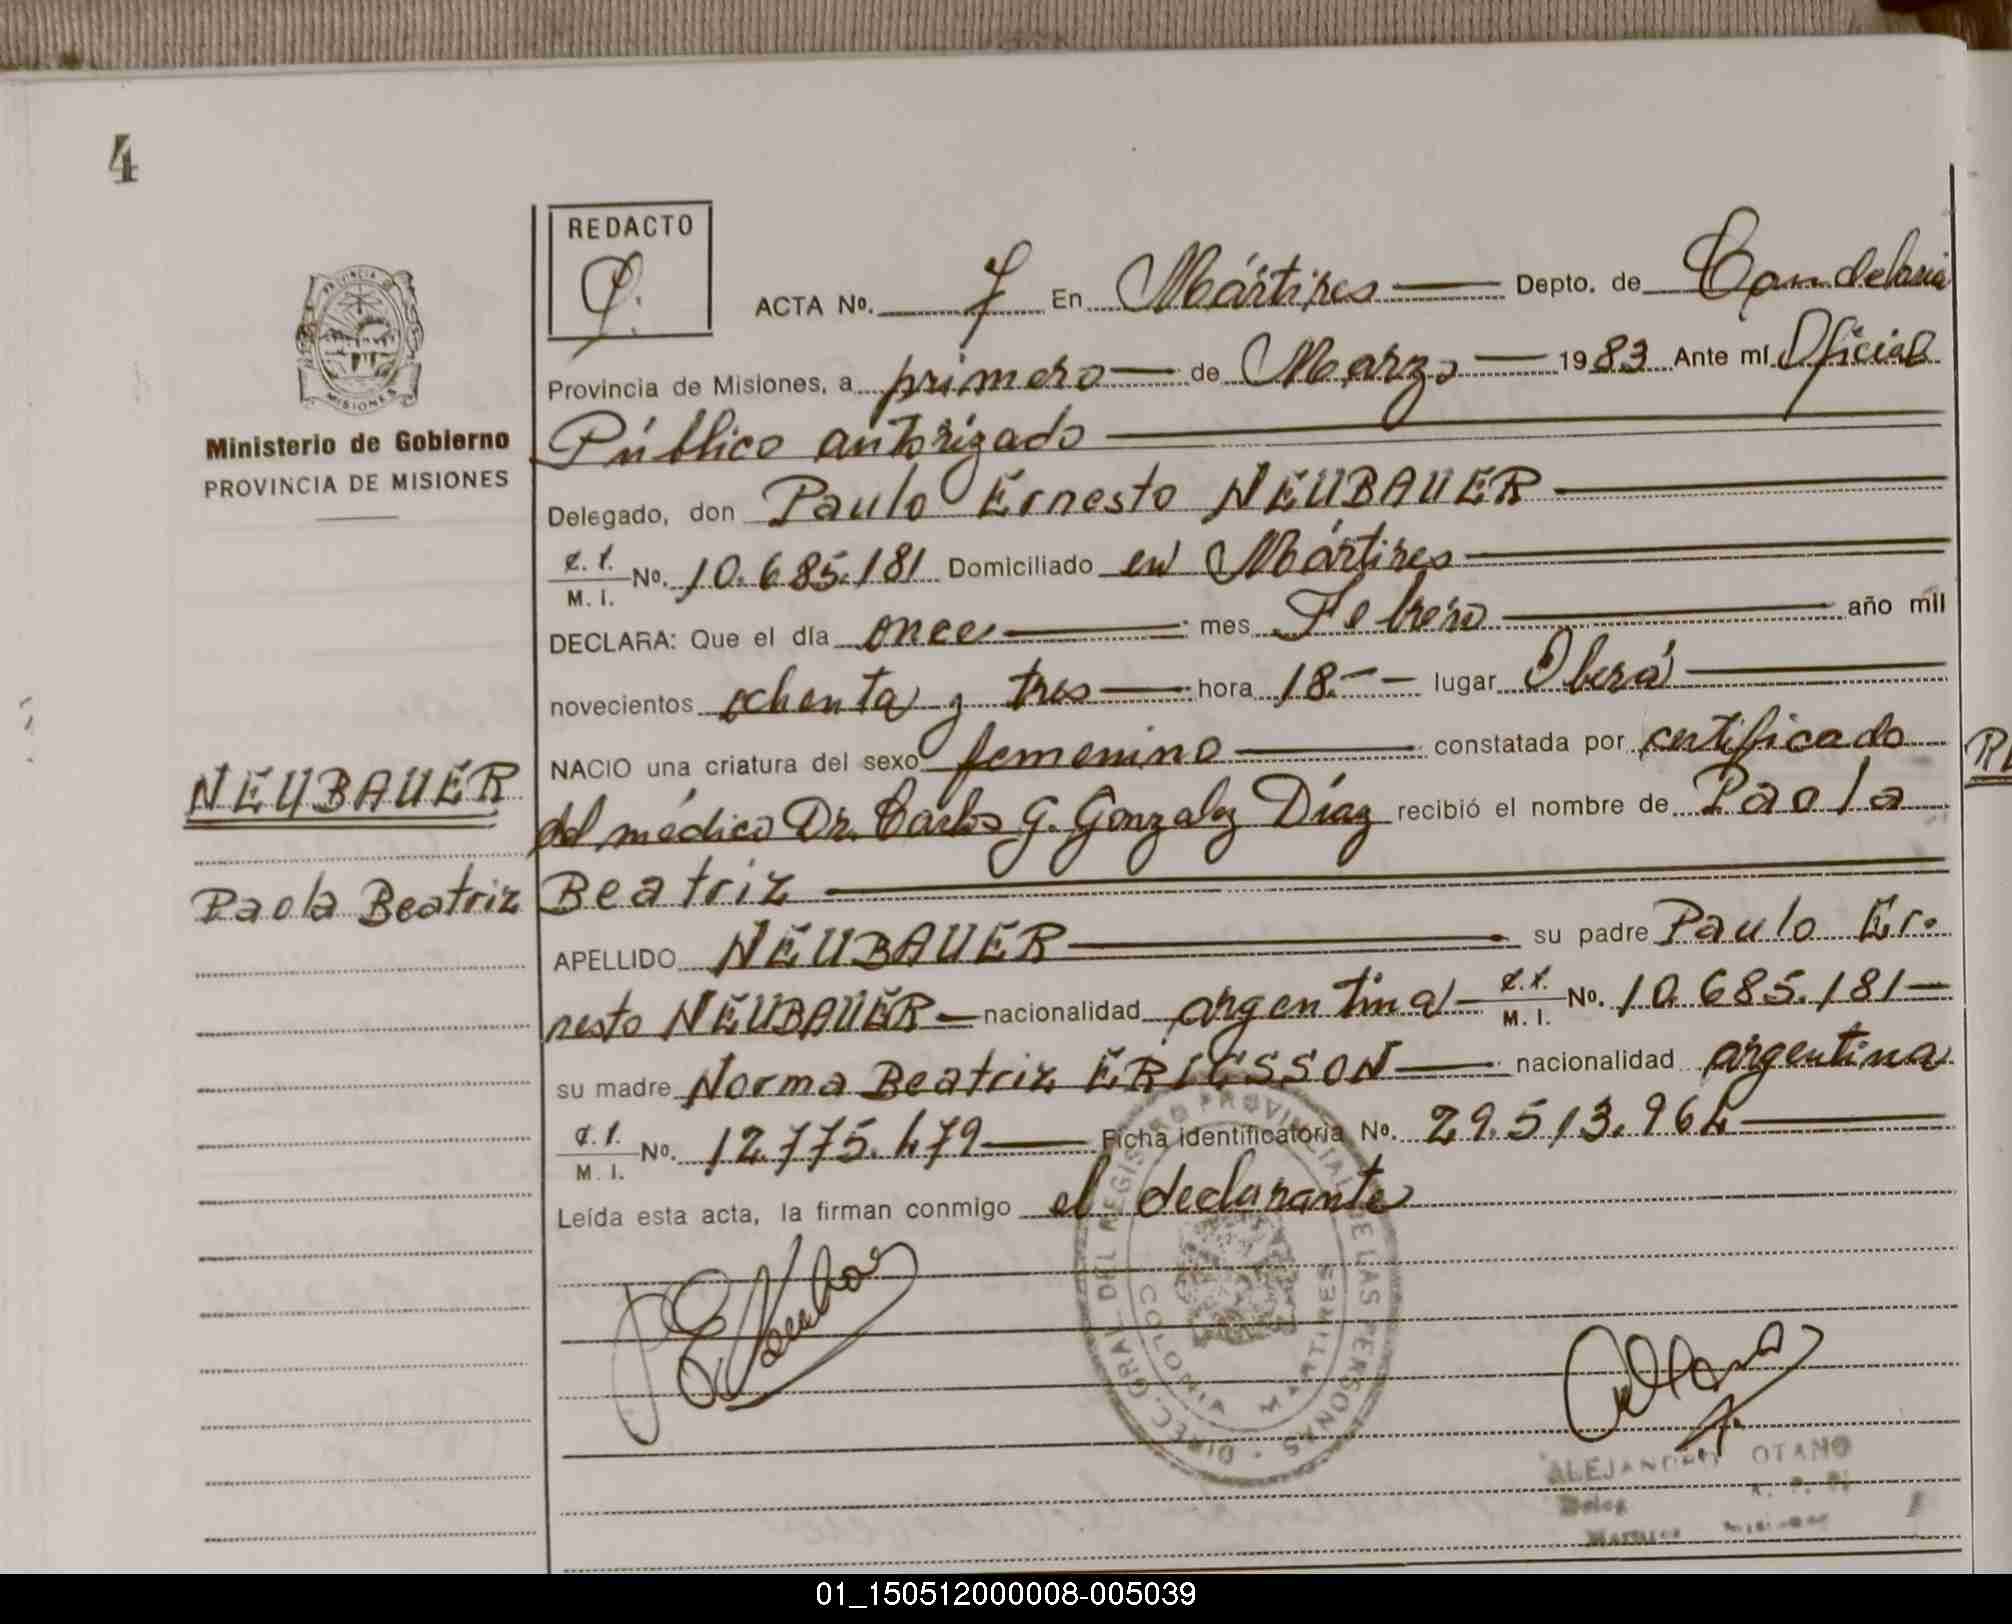 4
REDACTO
ACTA Nº. 7 En Mártires Depto. de Candelaria
Provincia de Misiones, a primero de Marzo 1983 Ante mí Oficial
Público autorizado
Delegado, don Paulo Ernesto NEUBAUER
C. I. M. I. Nº. 10.685.181 Domiciliado en Mártires
DECLARA: Que el día once mes Febrero año mil
novecientos ochenta y tres hora 18.-- lugar Oberá
NACIO una criatura del sexo femenino constatada por certificado
del médico Dr. Carlos G. Gonzalez Díaz recibió el nombre de Paola
Beatriz
APELLIDO NEUBAUER su padre Paulo Er-
nesto NEUBAUER nacionalidad argentina C. I. M. I. Nº. 10.685.181
su madre Norma Beatriz ERICSSON nacionalidad argentina
C. I. M. I. Nº. 12.775.479 Ficha identificatoria Nº. 29.513.964
Leída esta acta, la firman conmigo el declarante
PROVINCIA DE MISIONES
Ministerio de Gobierno
PROVINCIA DE MISIONES
NEUBAUER
Paola Beatriz
DIREC. GRAL. DEL REGISTRO PROVINCIAL DE LAS PERSONAS
COLONIA MARTIRES
ALEJANDRO OTANO
01_150512000008-005039